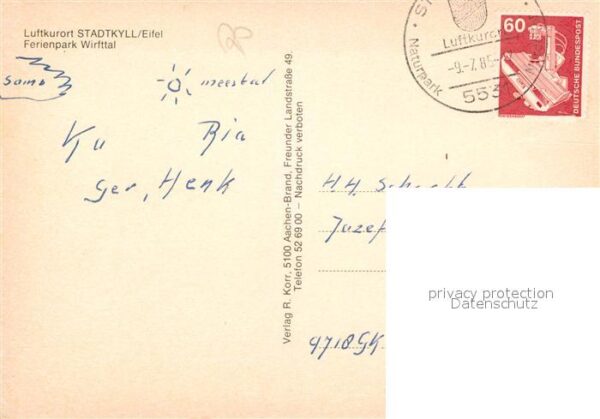 Luftkurort STADTKYLL/Eifel
Ferienpark Wirfttal
soms
meestal
Ria
Ger, Henk
Verlag R. Korr, 5100 Aachen-Brand, Freunder Landstraße 49
Telefon 52 69 00 – Nachdruck verboten
Luftkuror
-9.-7.85-
Naturpark
553
60
DEUTSCHE BUNDESPOST
Juzef
9718GK
privacy protection
Datenschutz